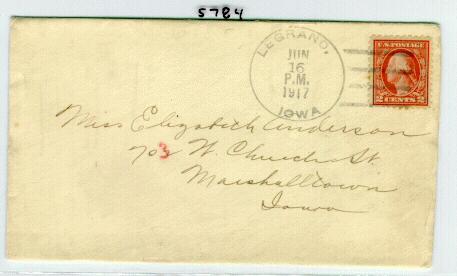 5784
LEGRAND,
JUN
16
P.M.
1917
IOWA
U.S. POSTAGE
2 CENTS 2
Miss Elizabeth Anderson
703 W. Church St.
Marshalltown
Iowa